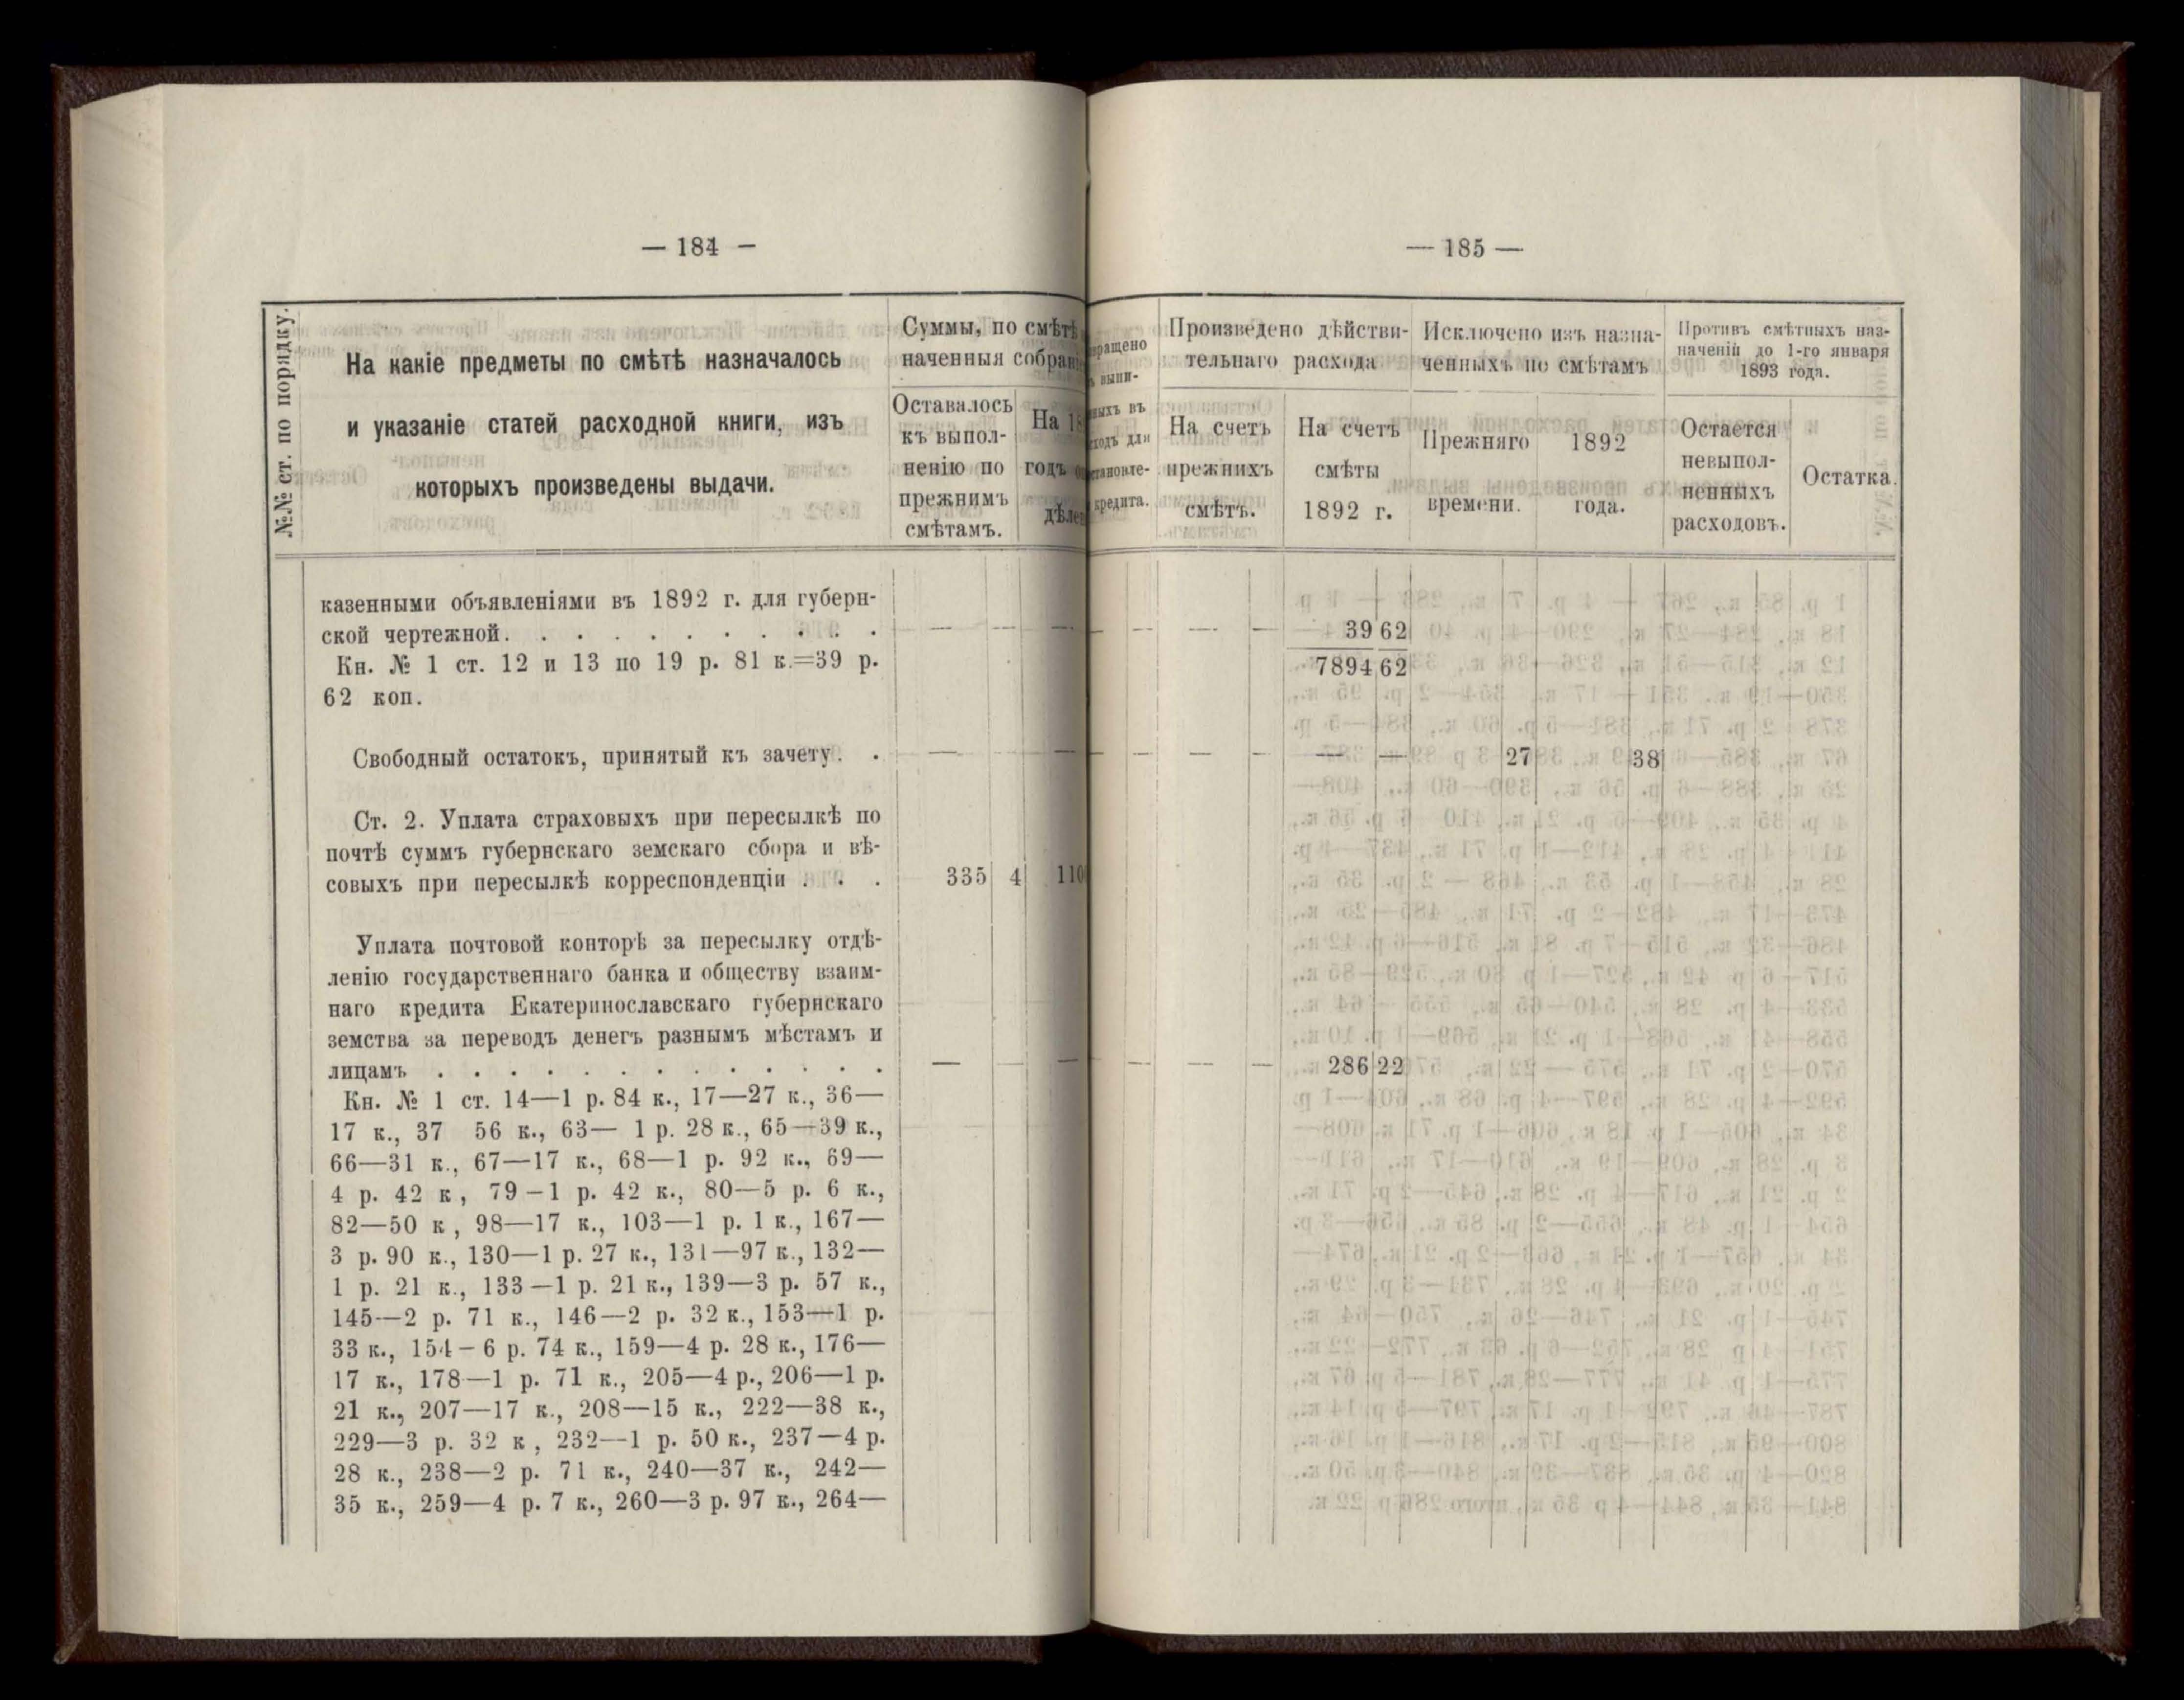 — 184 —
№№ ст. по порядку.
На какіе предметы по смѣтѣ назначалось
и указаніе статей расходной книги, изъ
которыхъ произведены выдачи.
Суммы, по смѣтѣ
наченныя собран
Оставалось
къ выпол-
ненію по
прежнимъ
смѣтамъ.
На 18
годъ
дѣле
казенными объявленіями въ 1892 г. для губерн-
ской чертежной. . . . . . . . . . — —
Кн. № 1 ст. 12 и 13 по 19 р. 81 к.=39 р.
62 коп.
Свободный остатокъ, принятый къ зачету. . — — —
Ст. 2. Уплата страховыхъ при пересылкѣ по
почтѣ суммъ губернскаго земскаго сбора и вѣ-
совыхъ при пересылкѣ корреспонденціи . . . 335 4 110
Уплата почтовой конторѣ за пересылку отдѣ-
ленію государственнаго банка и обществу взаим-
наго кредита Екатеринославскаго губернскаго
земства за переводъ денегъ разнымъ мѣстамъ и
лицамъ . . . . . . . . . . . . — — —
Кн. № 1 ст. 14—1 р. 84 к., 17—27 к., 36—
17 к., 37 56 к., 63— 1 р. 28 к., 65—39 к.,
66—31 к., 67—17 к., 68—1 р. 92 к., 69—
4 р. 42 к, 79—1 р. 42 к., 80—5 р. 6 к.,
82—50 к, 98—17 к., 103—1 р. 1 к., 167—
3 р. 90 к., 130—1 р. 27 к., 131—97 к., 132—
1 р. 21 к., 133—1 р. 21 к., 139—3 р. 57 к.,
145—2 р. 71 к., 146—2 р. 32 к., 153—1 р.
33 к., 154—6 р. 74 к., 159—4 р. 28 к., 176—
17 к., 178—1 р. 71 к., 205—4 р., 206—1 р.
21 к., 207—17 к., 208—15 к., 222—38 к.,
229—3 р. 32 к, 232—1 р. 50 к., 237—4 р.
28 к., 238—2 р. 71 к., 240—37 к., 242—
35 к., 259—4 р. 7 к., 260—3 р. 97 к., 264—
— 185 —
вращено
выпи-
ныхъ въ
ходъ для
становле-
кредита.
Произведено дѣйстви-
тельнаго расхода
На счетъ
прежнихъ
смѣтъ.
На счетъ
смѣты
1892 г.
Исключено изъ назна-
ченныхъ по смѣтамъ
Прежняго
времени.
1892
года.
Противъ смѣтныхъ наз-
наченій до 1-го января
1893 года.
Остается
невыпол-
ненныхъ
расходовъ.
Остатка.
— — — — 39 62
7894 62
— — — — — — 27 38
— — 286 22